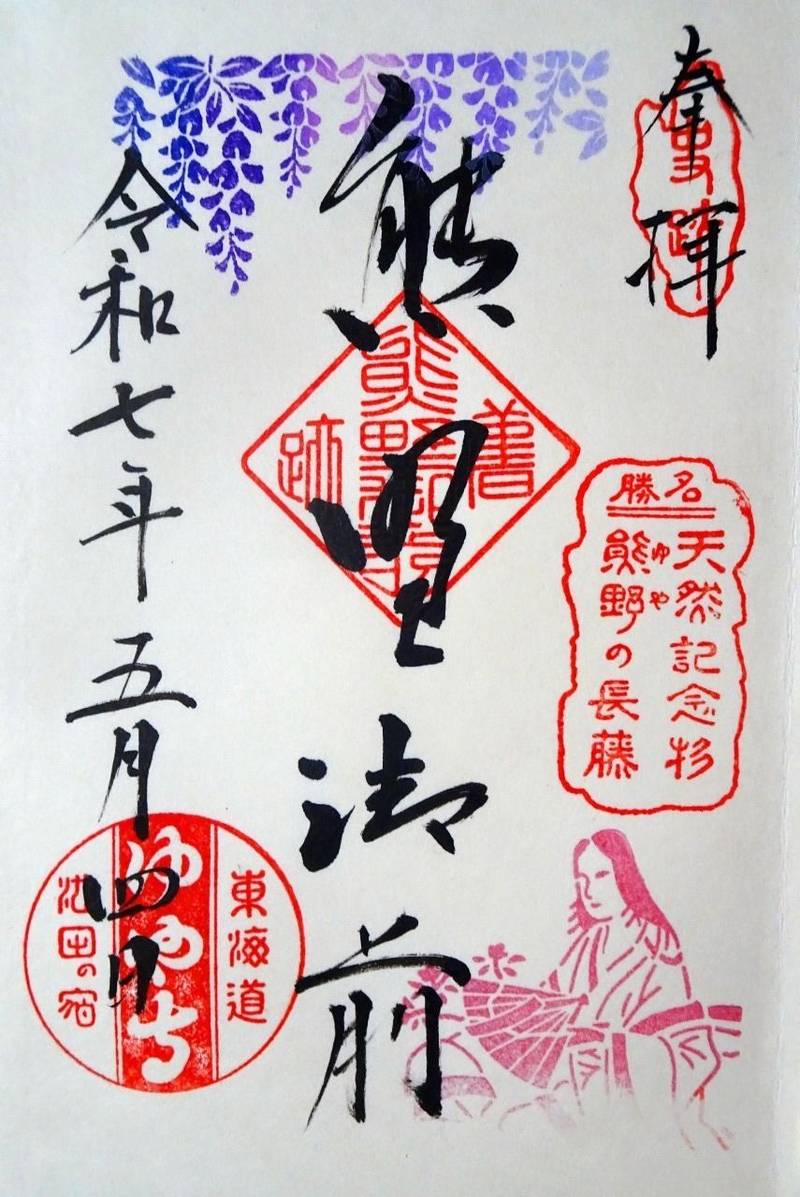 奉拝
名勝
天然記念物
熊野の長藤
ゆや
熊野御前
令和七年五月四日
東海道
ゆや寺
池田の宿